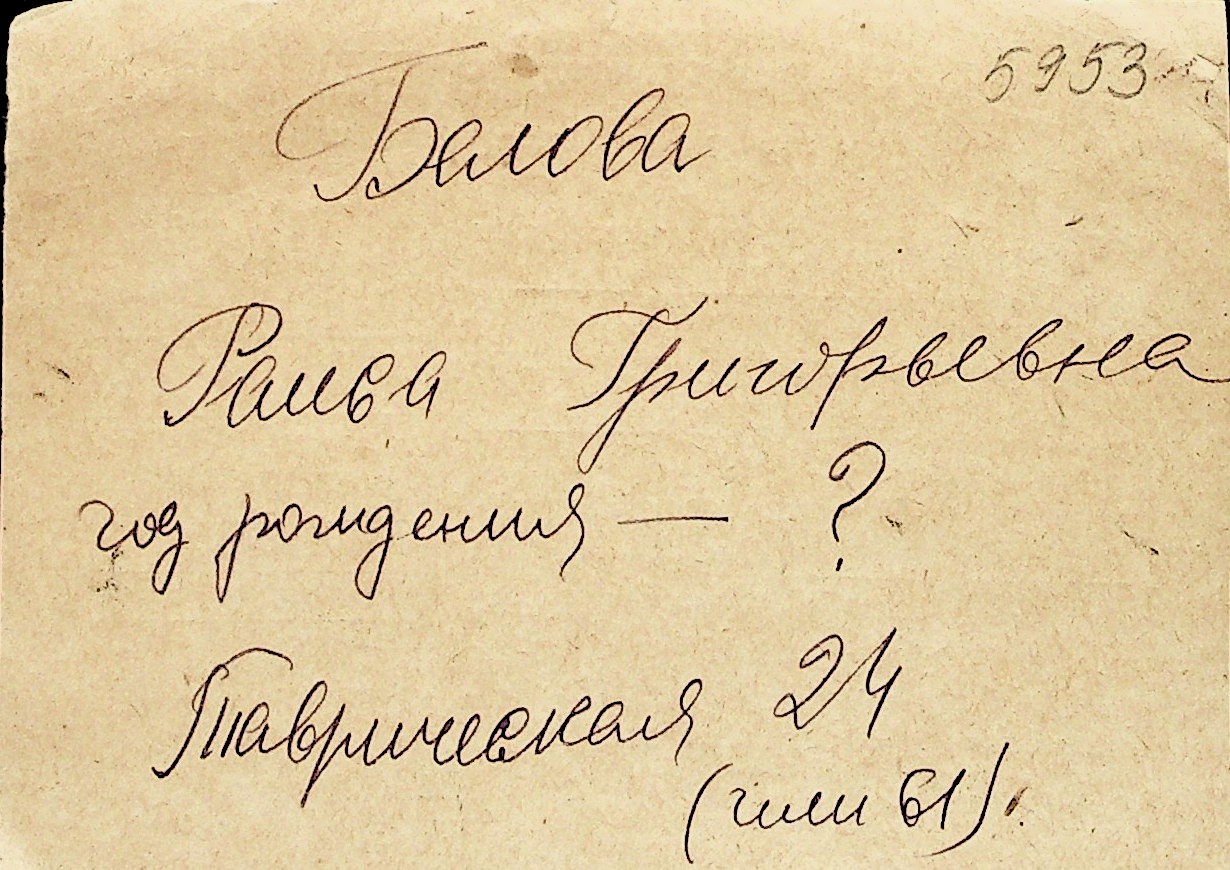 5953
Белова
Раиса Григорьевна
год рождения — ?
Таврическая 24
(или 61).